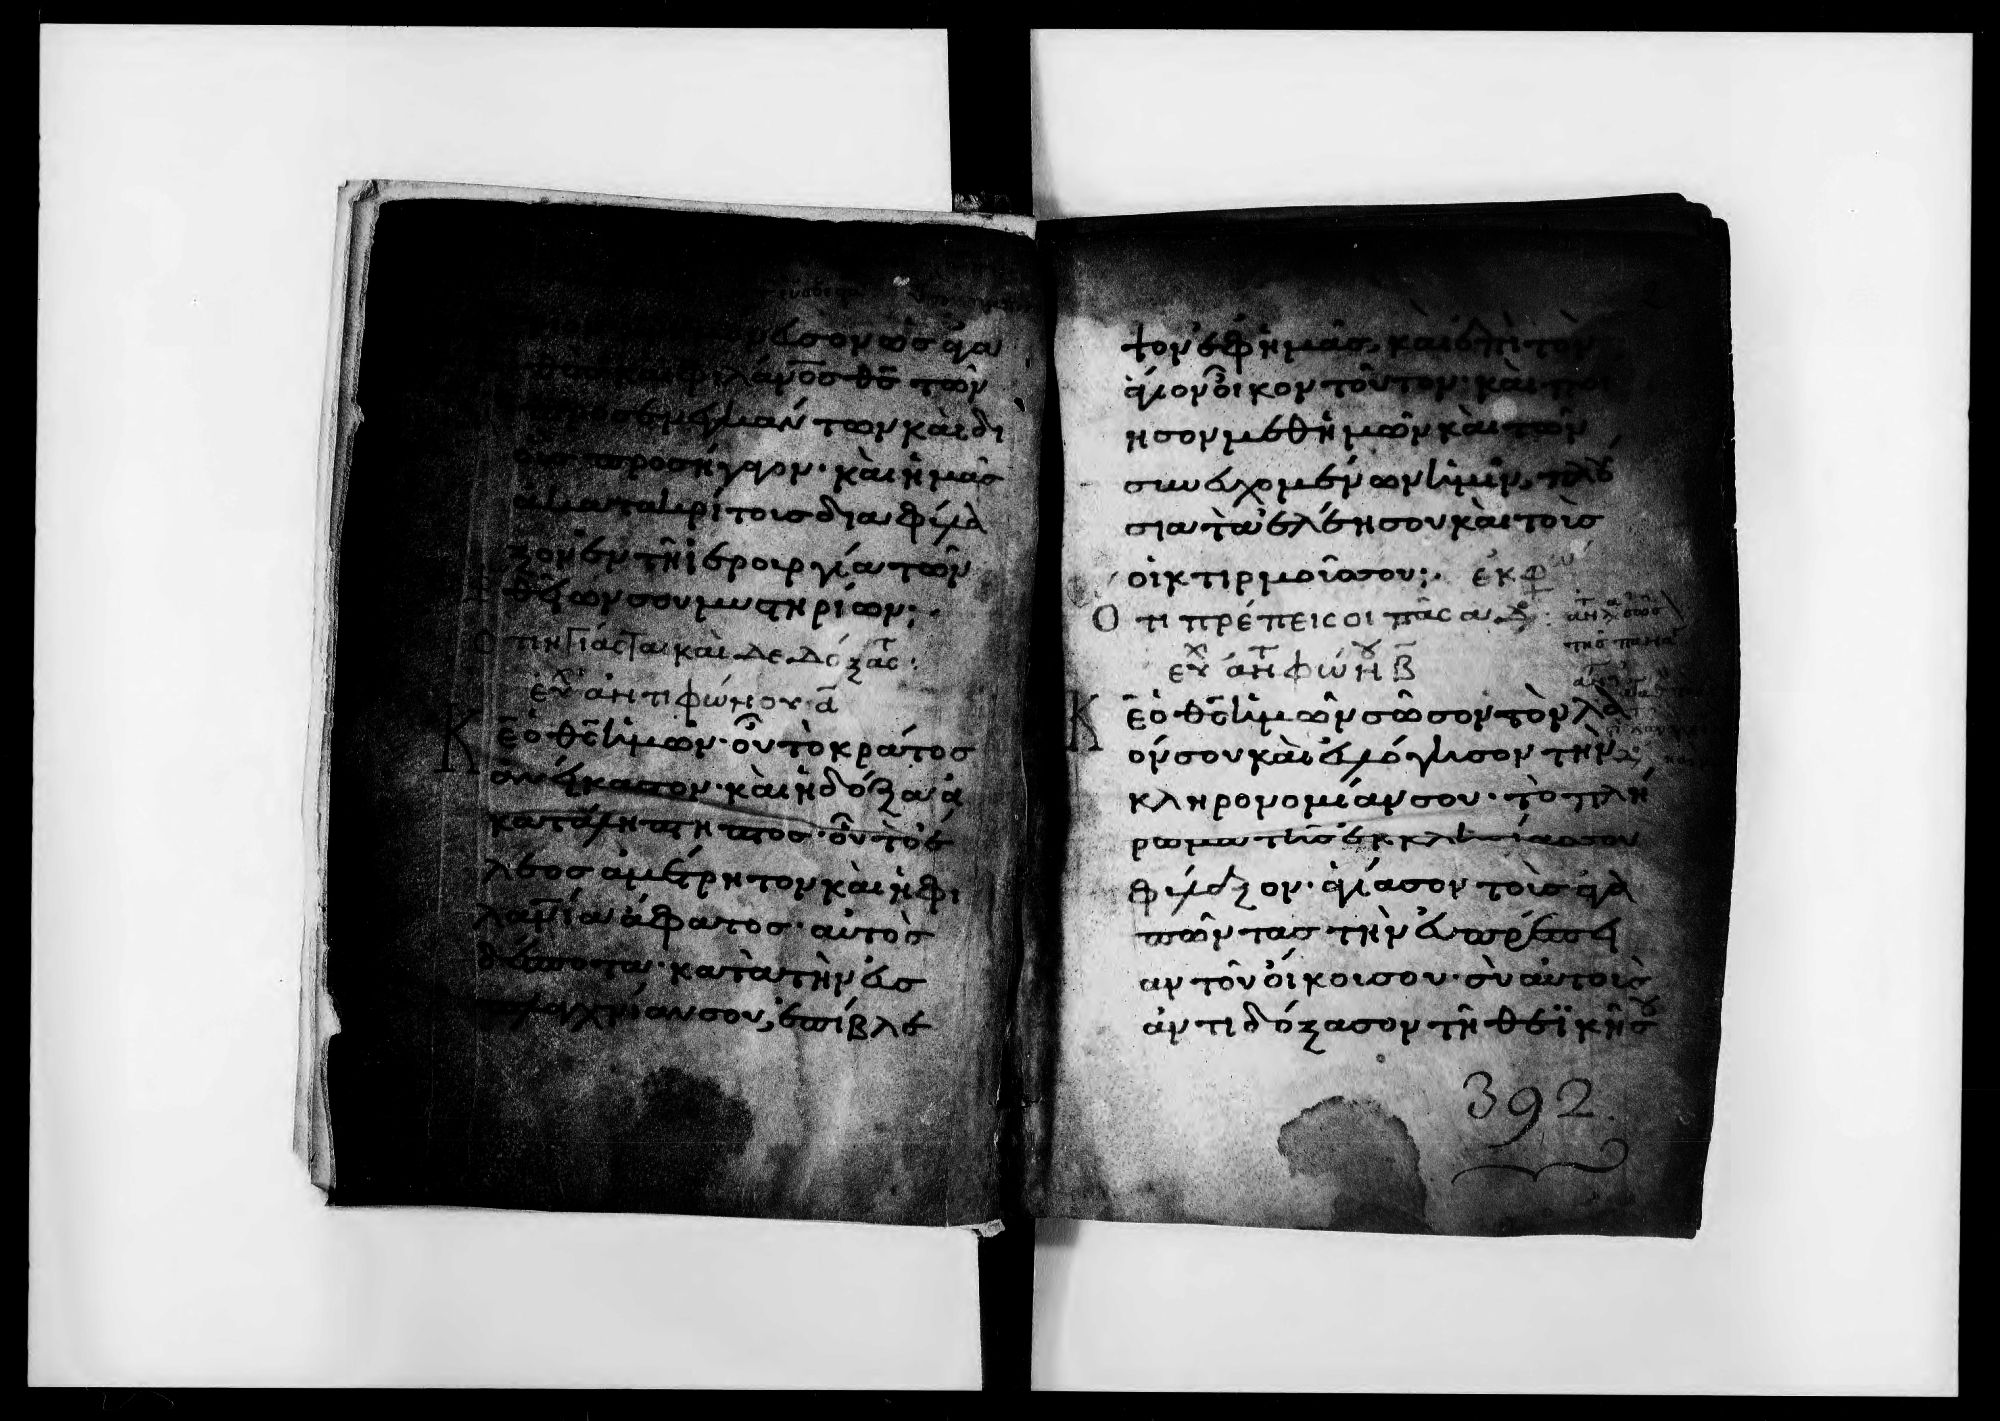 μνημόνευσον ὡς ἀγα
θὸς καὶ φιλάνο̅ς θς̅ τῶν
προσενεγκάντων καὶ δι
οὓς προσήγαγον· καὶ ἡμᾶς
ἀκατακρίτους διαφύλα
ξον ἐν τῆ ἱερουργία τῶν
θείων σου μυστηρίων:·
Ὅτι ηγίασται καὶ δεδόξαστ:
εὐχ ἀντιφώνου α̅
Κε̅ ὁ θς̅ ἡμῶν· οὗ τὸ κράτος
ἀνείκαστον· καὶ ἡ δόξα ἀ
κατάληπτος· οὗ τὸ ἔ
λεος ἀμέτρητον καὶ ἡ φι
λανία ἄφατος· αὐτὸς
δέσποτα· κατὰ τὴν εὐσ
πλαγχνίαν σου, ἐπίβλε
ψον ἐφ ἡμᾶς, καὶ ἐπὶ τὸν
ἅγιον οἶκον τοῦτον· καὶ ποί
ησον μεθ ἡμῶν καὶ τῶν
συνευχομένων ἡμῖν, πλού
σια τὰ ἐλέη σου καὶ τοὺς
οἰκτιρμούς σου:· ἐκφώ
Ὅτι πρέπει σοι πᾶσα δό:
εὐχ ἀντ φώνου β̅
Κε̅ ὁ θς̅ ἡμῶν σῶσον τὸν λα
όν σου καὶ εὐλόγησον τὴν
κληρονομίαν σου· τὸ πλή
ρωμα τῆς ἐκκλησίας σου
φύλαξον· ἁγίασον τοὺς ἀγα
πῶντας τὴν εὐπρέπει
αν τοῦ οἴκου σου· σὺ αὐτοὺς
ἀντιδόξασον τῆ θεϊκῆ σου
392